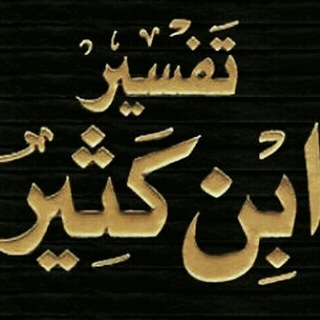 تَفْسِيرُ
ابْن كَثِيرٌ